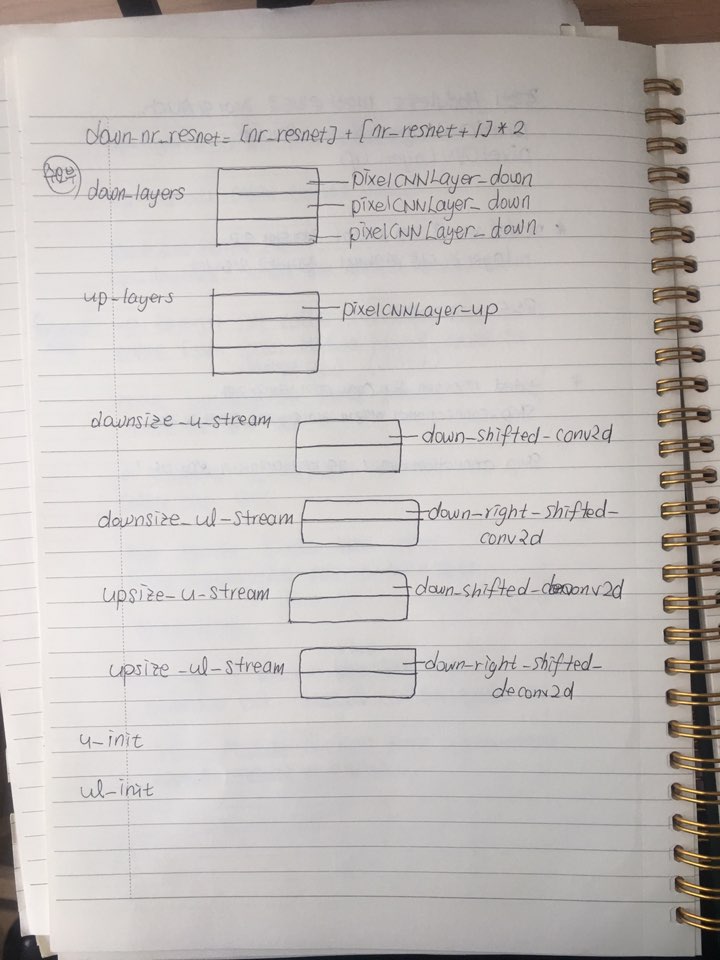 down-nr_resnet = [nr_resnet] + [nr_resnet+1] * 2
down_layers
pixelCNNLayer_down
pixelCNNLayer_down
pixelCNNLayer_down
up-layers
pixelCNNLayer-up
downsize-u-stream
down-shifted-conv2d
downsize_ul-stream
down-right-shifted-
conv2d
upsize-u-stream
down-shifted-deconv2d
upsize-ul-stream
down-right-shifted-
deconv2d
u-init
ul-init